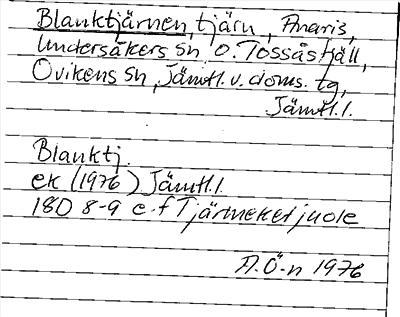 Blanktjärnen, tjärn, Anaris,
Undersåkers sn o. Tossåsfjäll,
Ovikens sn, Jämtl. v. doms. tg,
Jämtl. l.
Blanktj.
ek (1976) Jämtl. l.
18D 8-9 e-f Tjärmeketjuole
A.Ö-n 1976